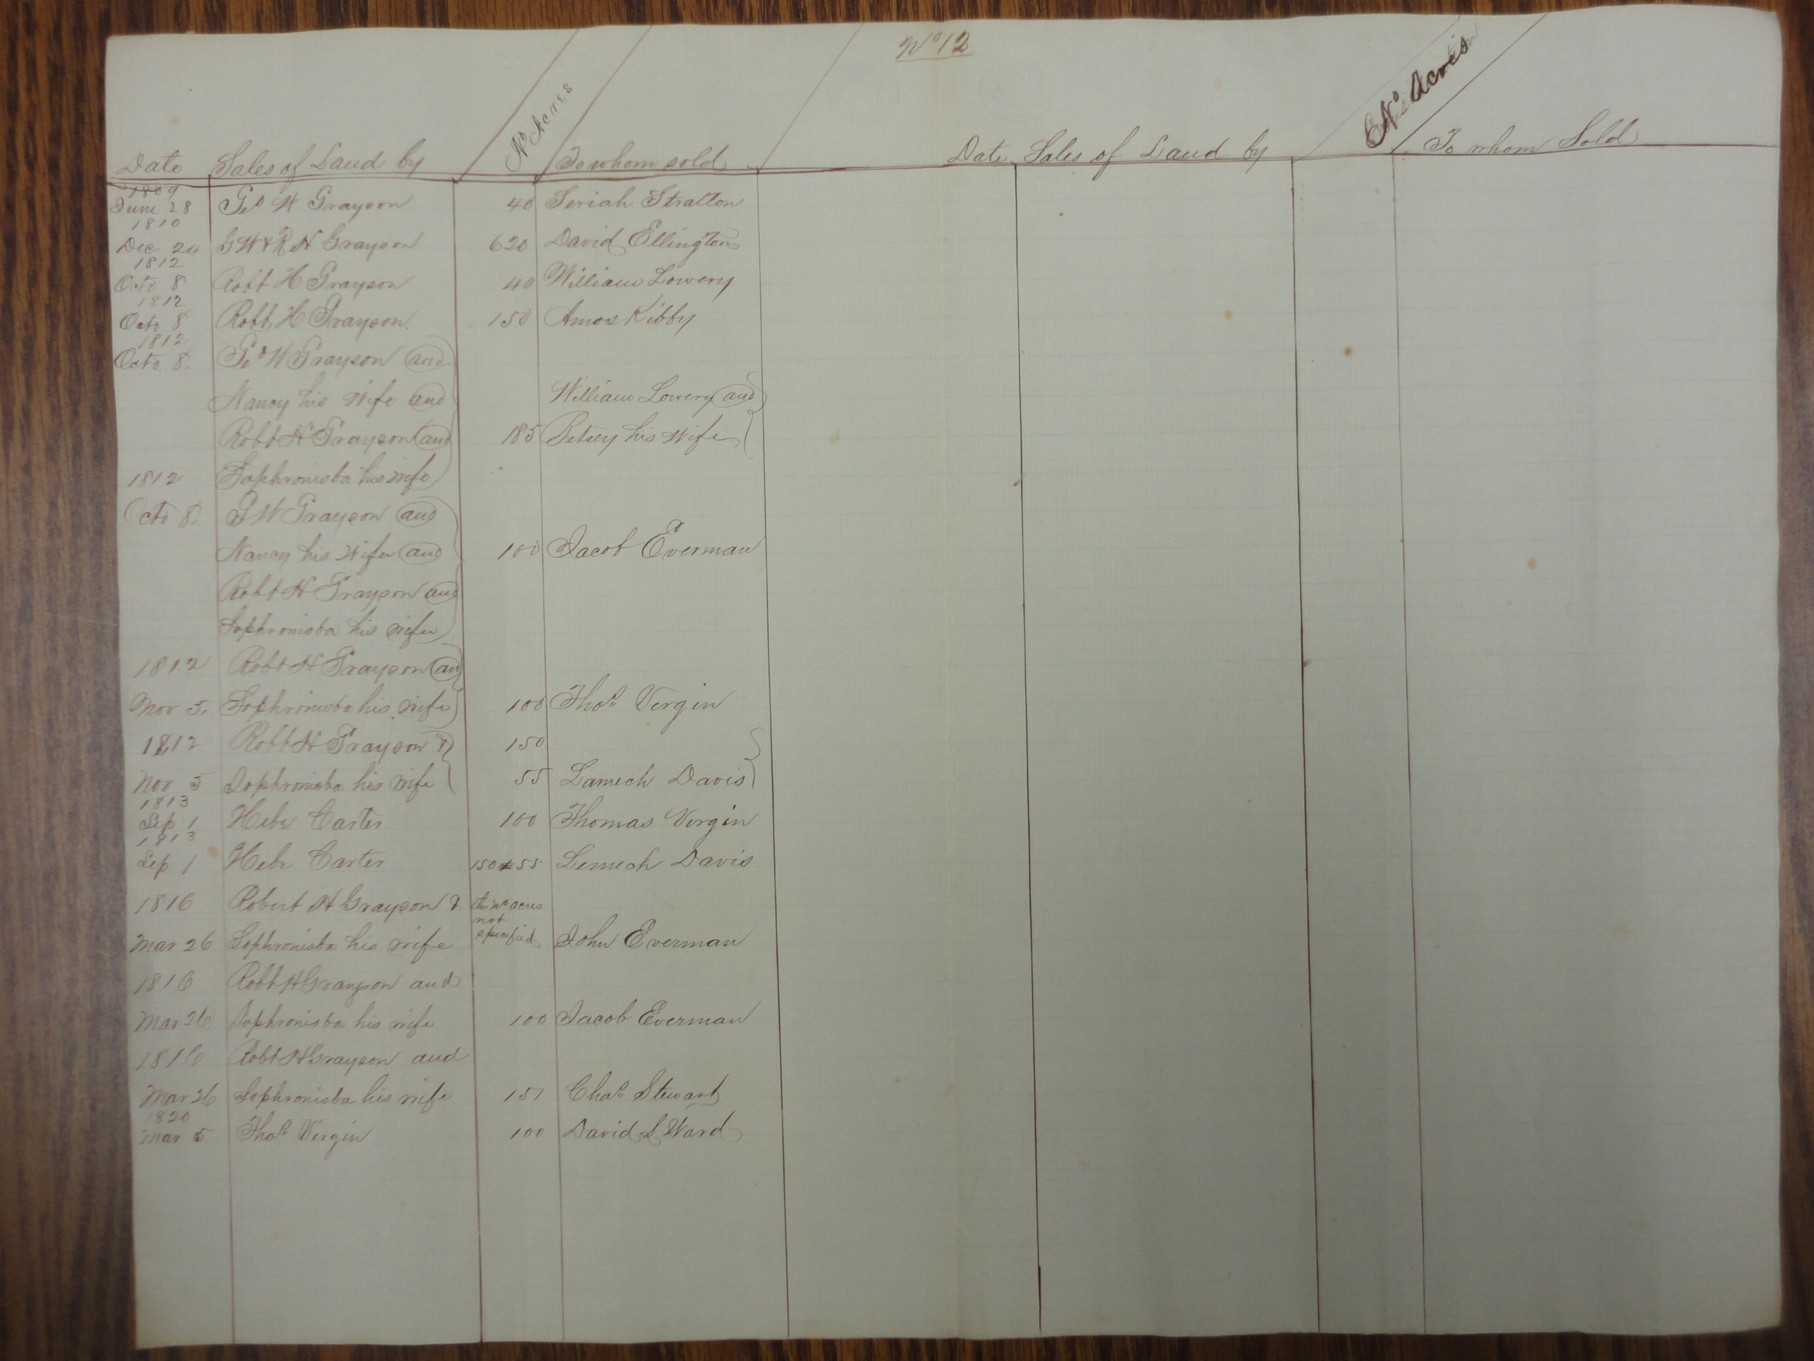 No 12
Date Sales of Land by No Acres To whom sold Date Sales of Land by No Acres To whom Sold
1809
June 28 Geo W Grayson 40 Seriah Stratton
1810
Dec 24 G W & R H Grayson 620 David Ellington
1812
Octr 8 Robt H Grayson 40 William Lowery
1812
Octo 8 Robt H Grayson 150 Amos Kibby
1812
Octo 8. Geo W Grayson and
Nancy his Wife and William Lowery and
Robt H Grayson and 185 Betsey his Wife
1812 Sophronisba his wife
Octo 8. G W Grayson and
Nancy his Wife and 100 Jacob Everman
Robt H Grayson and
Sophronisba his wife
1812 Robt H Grayson and
Nov 5. Sophronisba his wife 100 Thos Virgin
1812 Robt H Grayson & 150
Nov 5 Sophronisba his wife 55 Lamech Davis
1813
Sep 1 Hebe Carter 100 Thomas Virgin
1813
Sep 1 Hebe Carter 150 & 55 Lemech Davis
1816 Robert H Grayson & the no acres
not
Mar 26 Sophronisba his wife specified John Everman
1816 Robt H Grayson and
Mar 26 Sophronisba his wife 100 Jacob Everman
1816 Robt H Grayson and
Mar 26 Sophronisba his wife 151 Chas Stewart
1820
Mar 5 Thos Virgin 100 David L Ward